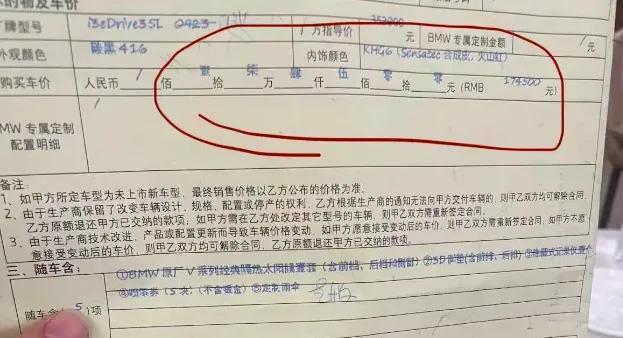 的物及车价
牌型号 i3eDrive35L 0923 厂方指导价 353900 元 BMW 专属定制金额 / 元
外观颜色 碳黑416 内饰颜色 KHG6 (Sensatec 合成皮, 火山红)
购买车价 人民币 / 佰 壹 拾 柒 万 肆 仟 伍 佰 零 拾 零 元 (RMB: 174500 元)
MW 专属定制
配置明细
备注:
1、如甲方所定车型为未上市新车型, 最终销售价格以乙方公布的价格为准。
2、由于生产商保留了改变车辆设计, 规格, 配置或停产的权利, 乙方根据生产商的通知无法向甲方交付车辆的, 则甲乙双方均可解除合同,
乙方原额退还甲方已交纳的款项; 如甲方需在乙方处改定其它型号的车辆, 则甲乙双方需重新签定合同。
3、由于生产商技术改进、产品或配置更新而导致车辆价格变动, 如甲方愿意接受变动后的车价, 则甲乙双方需重新签定合同, 如甲方不愿
意接受变动后的车价, 则甲乙双方均可解除合同, 乙方原额退还甲方已交纳的款项。
三、随车含:
①BMW 原厂 V 系列经典隔热太阳膜壹套 (含前档, 后档和侧窗) ②3D脚垫(含前排, 后排) ③隐藏式记录仪壹个
随车含( 5 )项 ④喷漆券 (5次) (不含钣金) ⑤定制雨伞